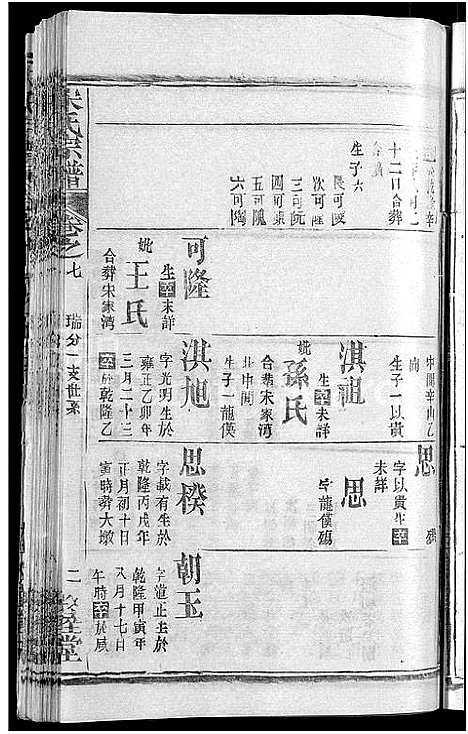 十二日合葬
合墳
生子六
長可陵
次可隆
三可阮
四可東
五可隗
六可陶
中閣辛山乙
向
生子一以貴
淇祖
生卒未詳
妣孫氏
合葬宋家湾
北中閣
生子一龍僕
可隆
生卒未詳
妣王氏
合葬宋家湾
淇旭
字光明生於
雍正乙卯年
三月二十三
卒於乾隆乙
思
字以貴生卒
未詳
思
字龍僕殤
思稑
字載有生於
乾隆丙戌年
正月初十日
寅時葬大墩
朝玉
字道正生於
乾隆甲寅年
八月十七日
午時卒於咸
宋氏宗譜
卷之七
瑞公一支世系
二
堂